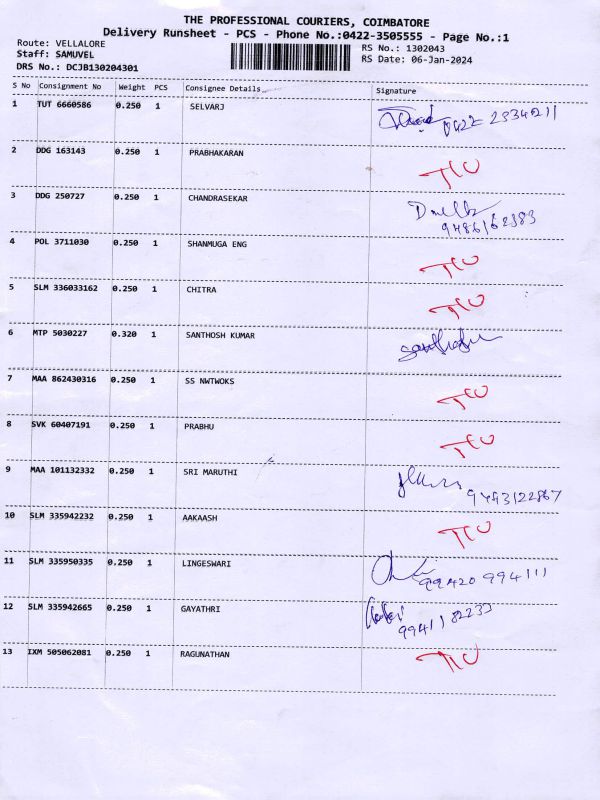 THE PROFESSIONAL COURIERS, COIMBATORE
Delivery Runsheet - PCS - Phone No.:0422-3505555 - Page No.:1
Route: VELLALORE RS No.: 1302043
Staff: SAMUVEL RS Date: 06-Jan-2024
DRS No.: DCJB130204301
S No Consignment No Weight PCS Consignee Details Signature
1 TUT 6660586 0.250 1 SELVARJ 0422 2334211
2 DDG 163143 0.250 1 PRABHAKARAN
3 DDG 250727 0.250 1 CHANDRASEKAR
9486162383
4 POL 3711030 0.250 1 SHANMUGA ENG
5 SLM 336033162 0.250 1 CHITRA
6 MTP 5030227 0.320 1 SANTHOSH KUMAR
7 MAA 862430316 0.250 1 SS NWTWOKS
8 SVK 60407191 0.250 1 PRABHU
9 MAA 101132332 0.250 1 SRI MARUTHI
9443122867
10 SLM 335942232 0.250 1 AAKAASH
11 SLM 335950335 0.250 1 LINGESWARI
99420 994111
12 SLM 335942665 0.250 1 GAYATHRI
9941182233
13 IXM 505062081 0.250 1 RAGUNATHAN